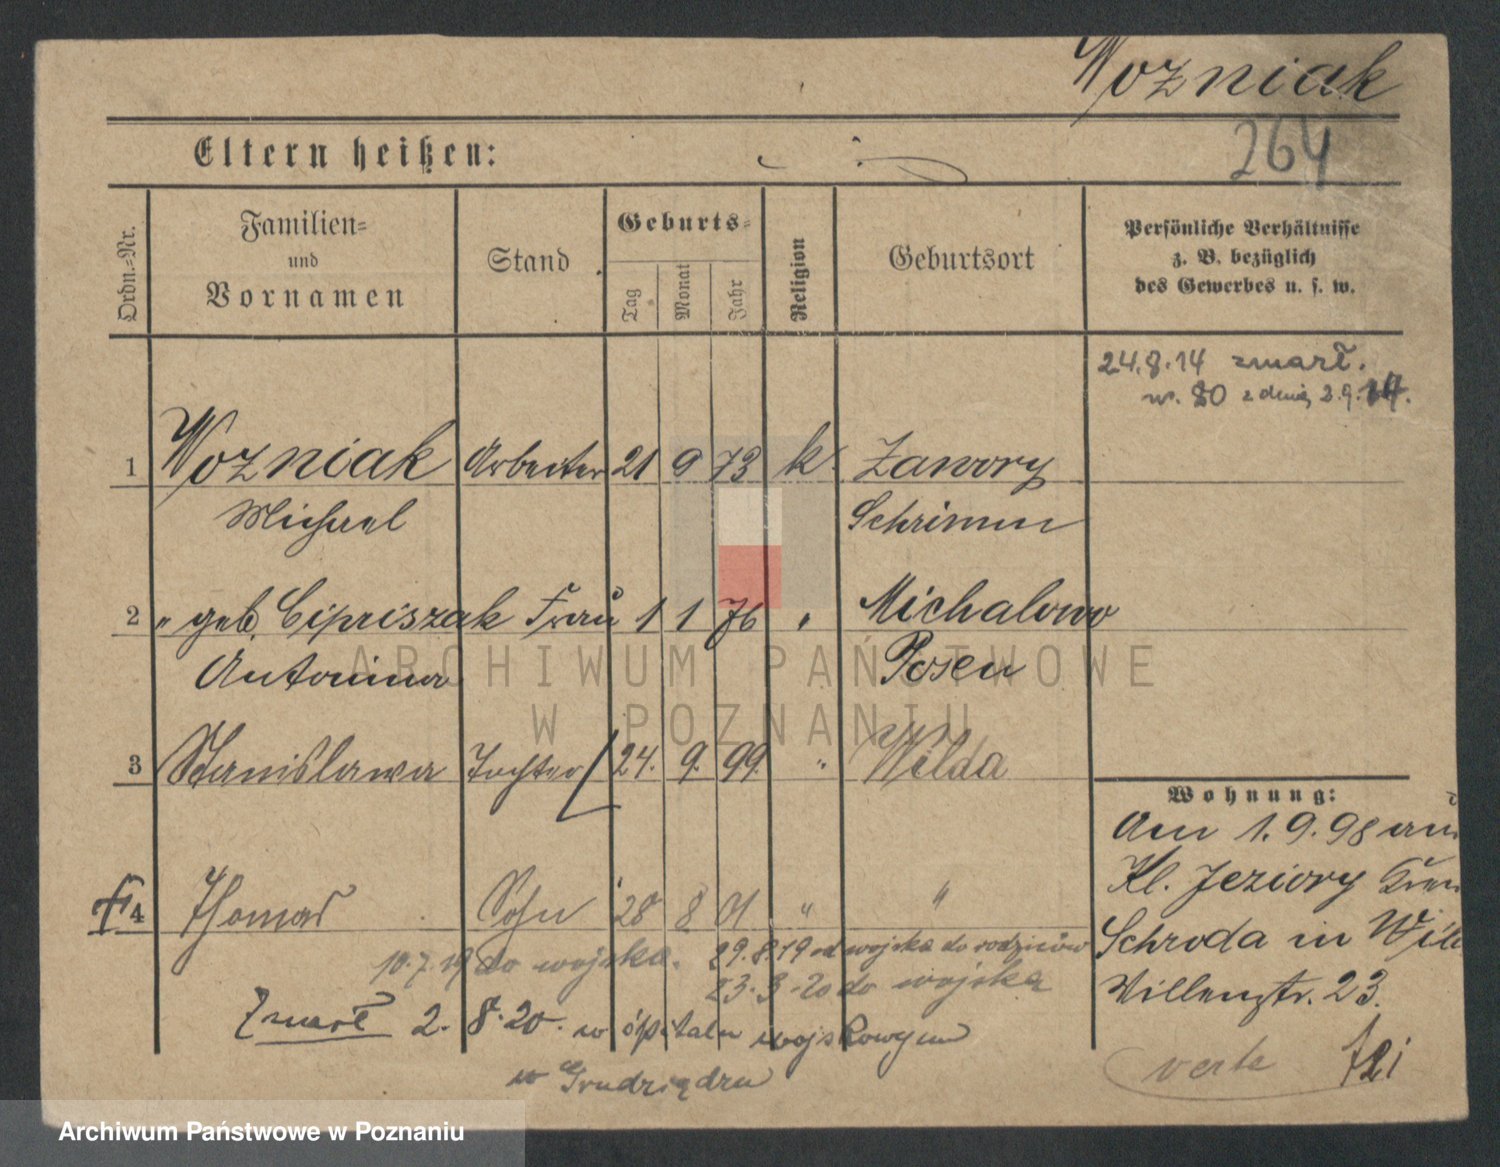 Wozniak
264
Eltern heißen:
Ordn.=Nr.
Familien=
und
Vornamen
Stand
Geburts=
Tag
Monat
Jahr
Religion
Geburtsort
Persönliche Verhältnisse
z. B. bezüglich
des Gewerbes u. s. w.
24.8.14 zmarł.
nr. 80 z dnia 2.9.14.
1 Wozniak Arbeiter 21 9 73 k. Zawory
Michael Schrimm
2 " geb. Cipriszak Frau 1 1 76 " Michalowo
Antonina Posen
3 Stanislawa Tochter 24. 9. 99. " Wilda
Wohnung:
Am 1.9.98 aus
Kl. Jeziory
Schroda in
Willenstr. 23.
4 Thomas Sohn 28 8 01 " "
10.7.19 do wojska. 29.8.19 od wojska do rodziców
23.3.20 do wojska
Zmarł 2.8.20. w śpitalu wojskowym
w Grudziądzu
verte
ARCHIWUM PAŃSTWOWE
W POZNANIU
Archiwum Państwowe w Poznaniu